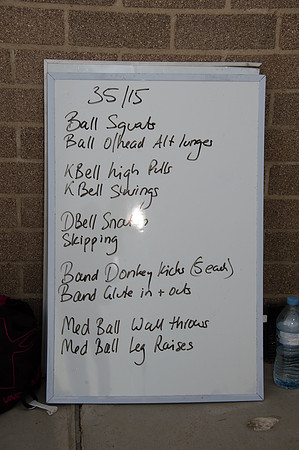 35/15
Ball Squats
Ball O/head Alt lunges
KBell high Pulls
KBell Swings
DBell
Skipping
Band Donkey Kicks (5 each)
Band Glute in + outs
Med Ball Wall throws
Med Ball Leg Raises